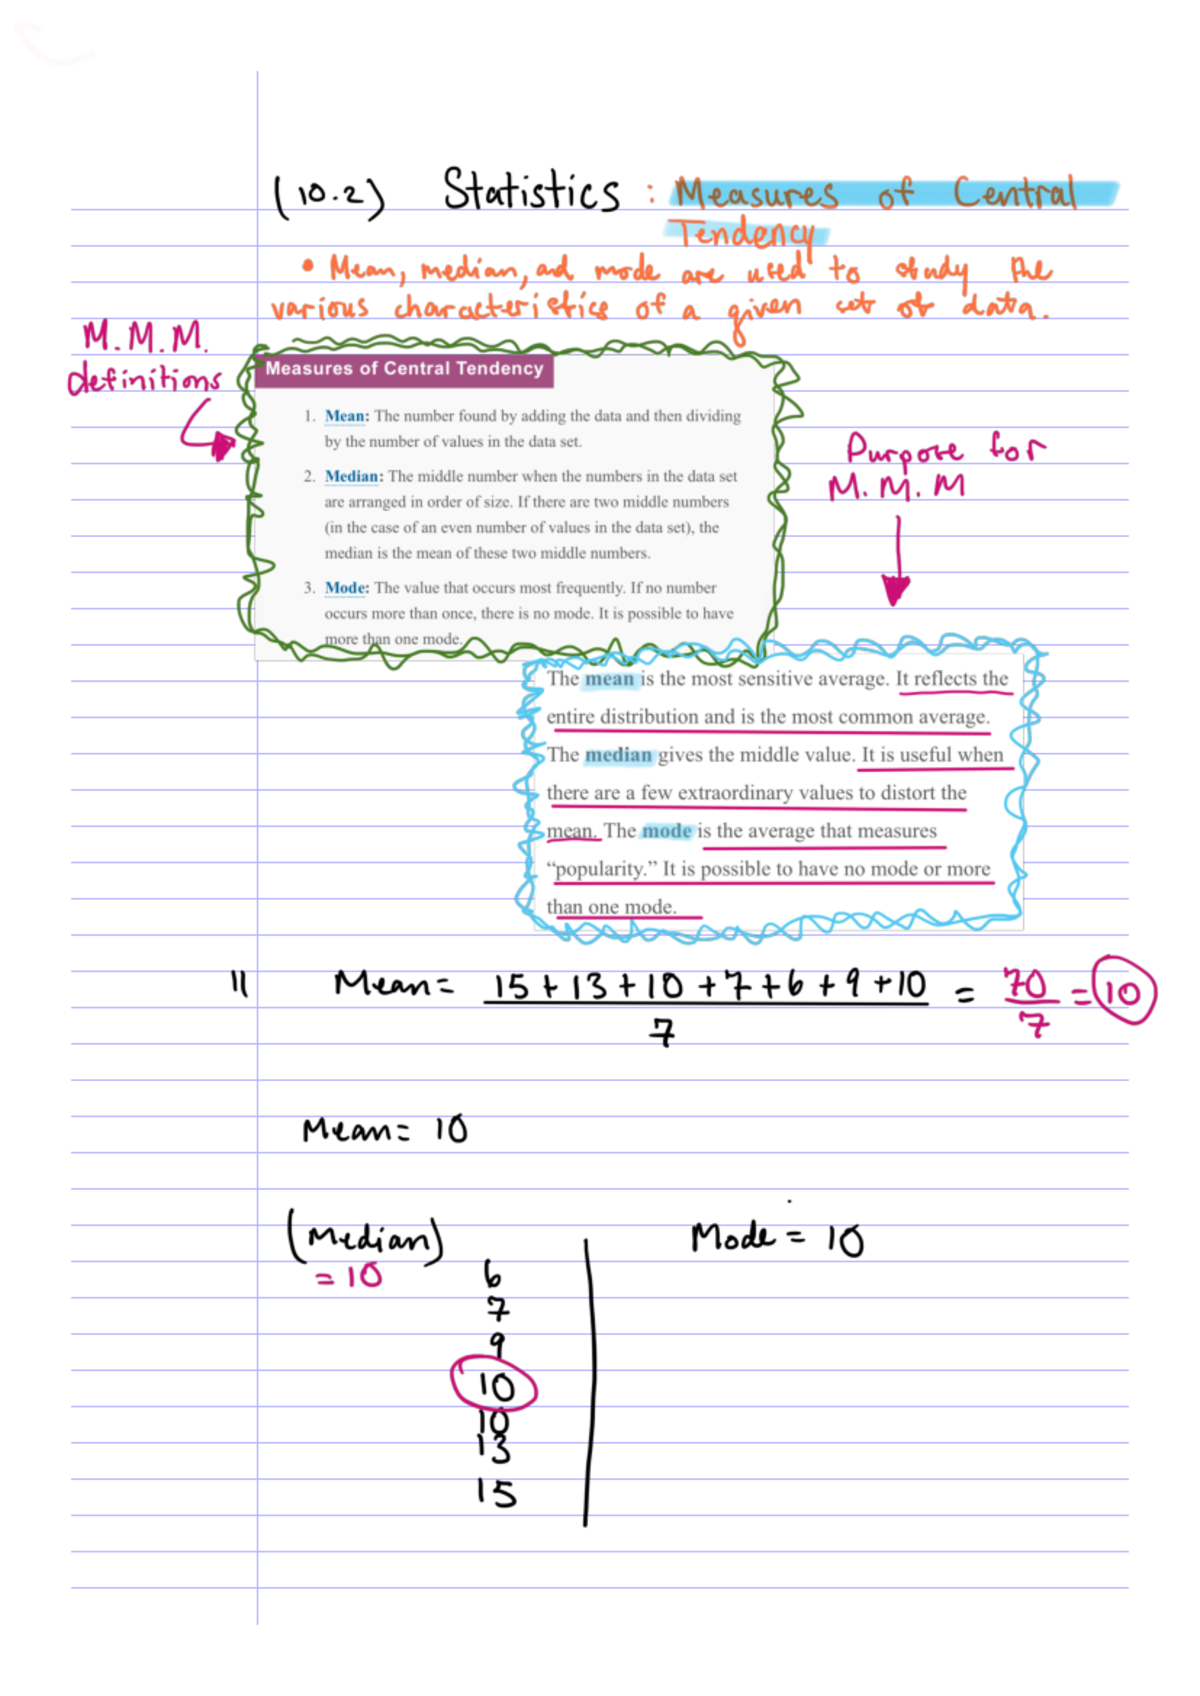 (10.2) Statistics : Measures of Central
Tendency
• Mean, median, and mode are used to study the
various characteristics of a given set of data.
M.M.M.
definitions
Measures of Central Tendency
1. Mean: The number found by adding the data and then dividing
by the number of values in the data set.
2. Median: The middle number when the numbers in the data set
are arranged in order of size. If there are two middle numbers
(in the case of an even number of values in the data set), the
median is the mean of these two middle numbers.
3. Mode: The value that occurs most frequently. If no number
occurs more than once, there is no mode. It is possible to have
more than one mode.
Purpose for
M. M. M
The mean is the most sensitive average. It reflects the
entire distribution and is the most common average.
The median gives the middle value. It is useful when
there are a few extraordinary values to distort the
mean. The mode is the average that measures
“popularity.” It is possible to have no mode or more
than one mode.
11 Mean = 15 + 13 + 10 + 7 + 6 + 9 + 10 = 70 = 10
7 7
Mean = 10
(Median)
= 10
6
7
9
10
10
13
15
Mode = 10